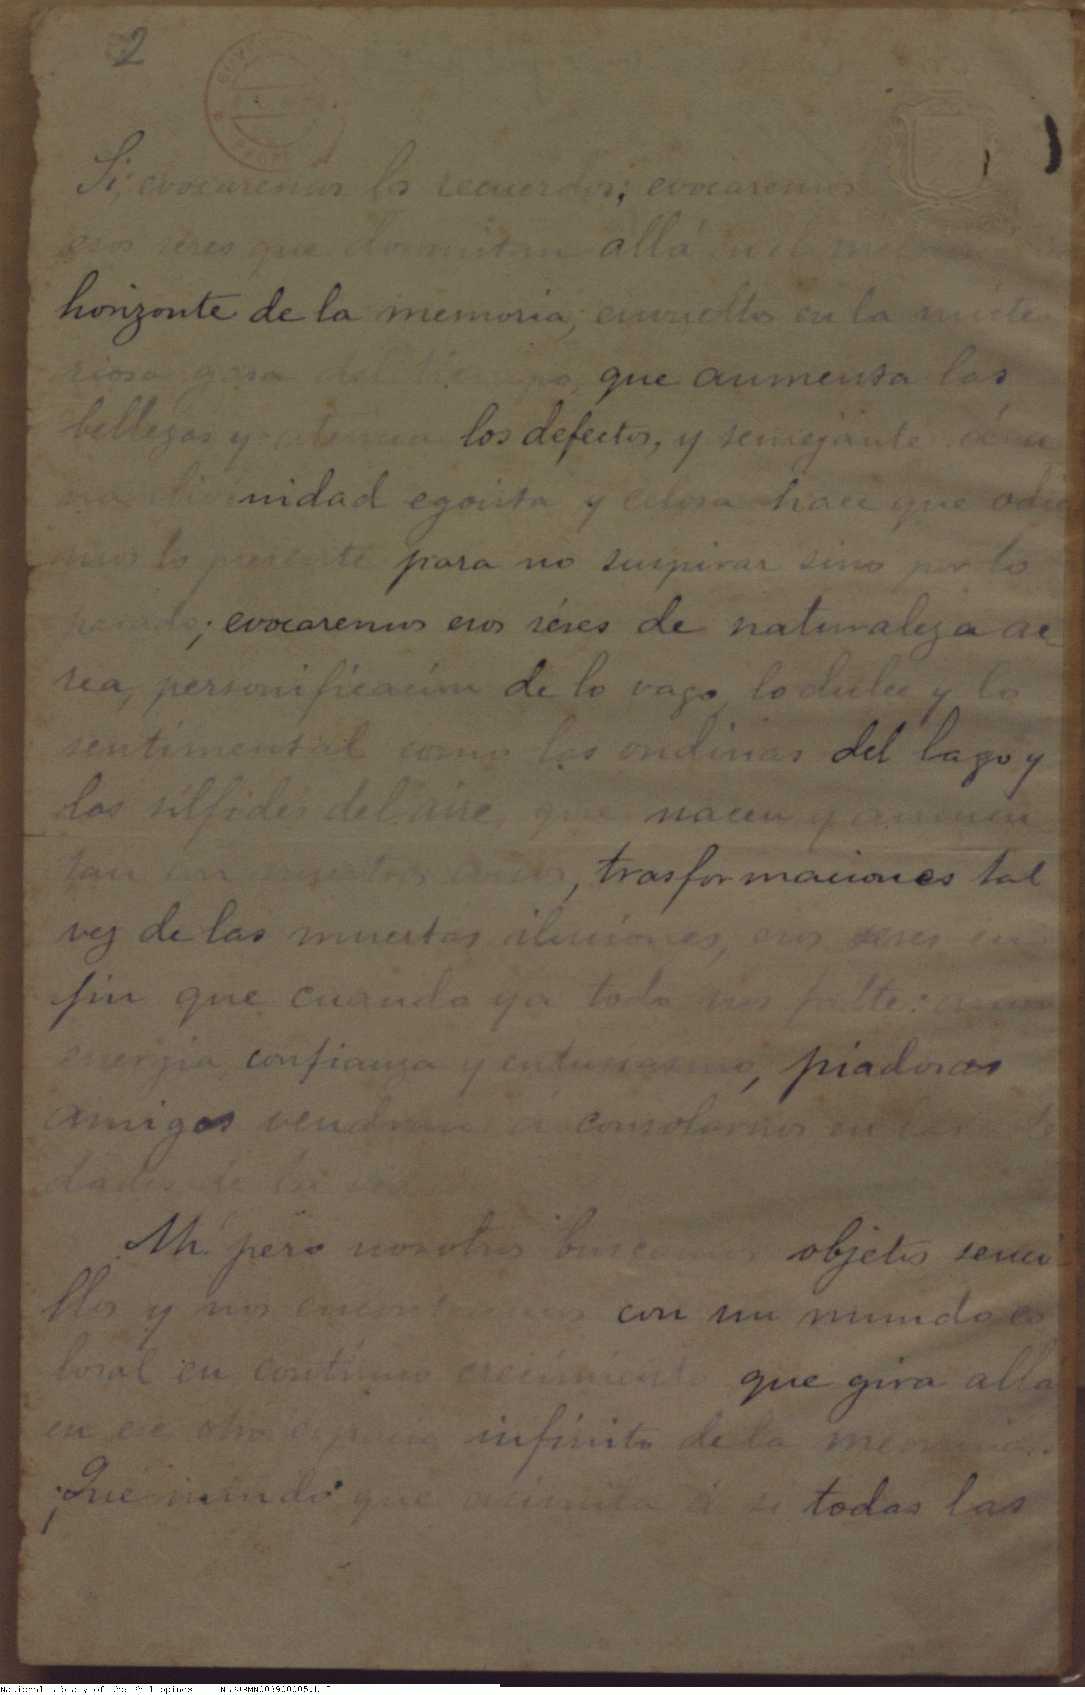 2
Si; evocaremos los recuerdos; evocaremos
esos seres que dormitan allá en el
horizonte de la memoria, envueltos en la miste
riosa gasa del tiempo, que aumenta las
bellezas y atenua los defectos, y semejante á u
na divinidad egoista y celosa hace que odie
mos lo presente para no suspirar sino por lo
pasado; evocaremos esos séres de naturaleza ae
rea, personificación de lo vago, lo dulce y lo
sentimental como las ondinas del lago y
los silfides del aire, que nacen y aumen
tan con nuestros años, trasformaciones tal
vez de las muertas ilusiones, esos seres en
fin que cuando ya todo nos falte: amor
energia confianza y entusiasmo, piadosos
amigos vendran á consolarnos en
dades de la
Ah! pero nosotros buscamos objetos senci
llos y nos encontramos con un mundo es
boral en contínuo crecimiento que gira allá
en ese otro espacio infinito de la memoria.
¡Qué mundo que á si todas las
National Library of the Philippines